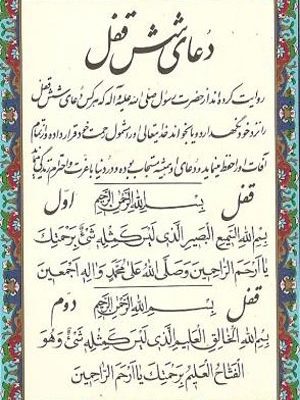 دعای شش قفل
روایت کرده‌اند از حضرت رسول صلی الله علیه و آله که هر کس دعای شش قفل
را نزد خود نگهدارد و یا بخواند خدایتعالی او را مشمول رحمت خود قرار داده و از تمام
آفات او را حفظ مینماید و دعای او همیشه مستجاب بوده و در دنیا با عزت و احترام زندگی کند
قفل بسم الله الرحمن الرحیم اول
بسم الله السمیع البصیر الذی لیس کمثله شیء برحمتک
یا ارحم الراحمین وصلی الله علی محمد واله اجمعین
قفل بسم الله الرحمن الرحیم دوم
بسم الله الخالق العلیم الذی لیس کمثله شیء وهو
الفتاح العلیم برحمتک یا ارحم الراحمین